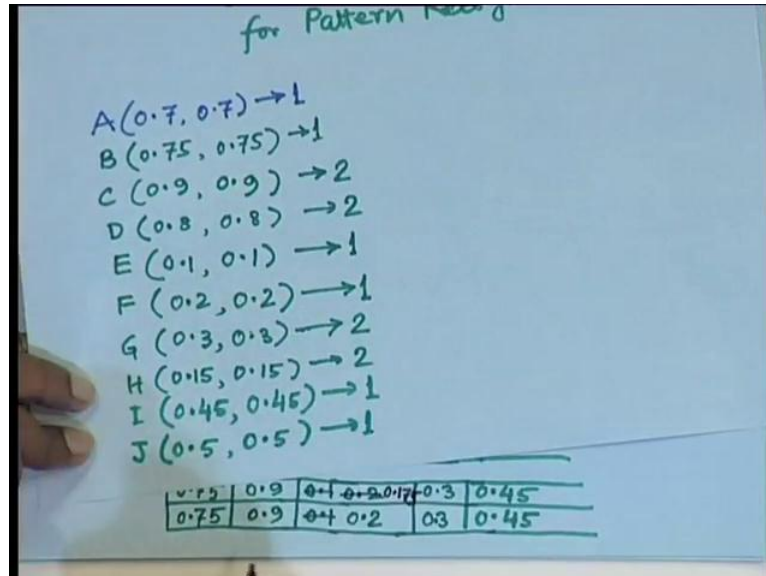 for Pattern
A (0.7, 0.7) → 1
B (0.75, 0.75) → 1
C (0.9, 0.9) → 2
D (0.8, 0.8) → 2
E (0.1, 0.1) → 1
F (0.2, 0.2) → 1
G (0.3, 0.3) → 2
H (0.15, 0.15) → 2
I (0.45, 0.45) → 1
J (0.5, 0.5) → 1
0.75 0.9 0.1 0.2 0.17 0.3 0.45
0.75 0.9 0.1 0.2 0.3 0.45